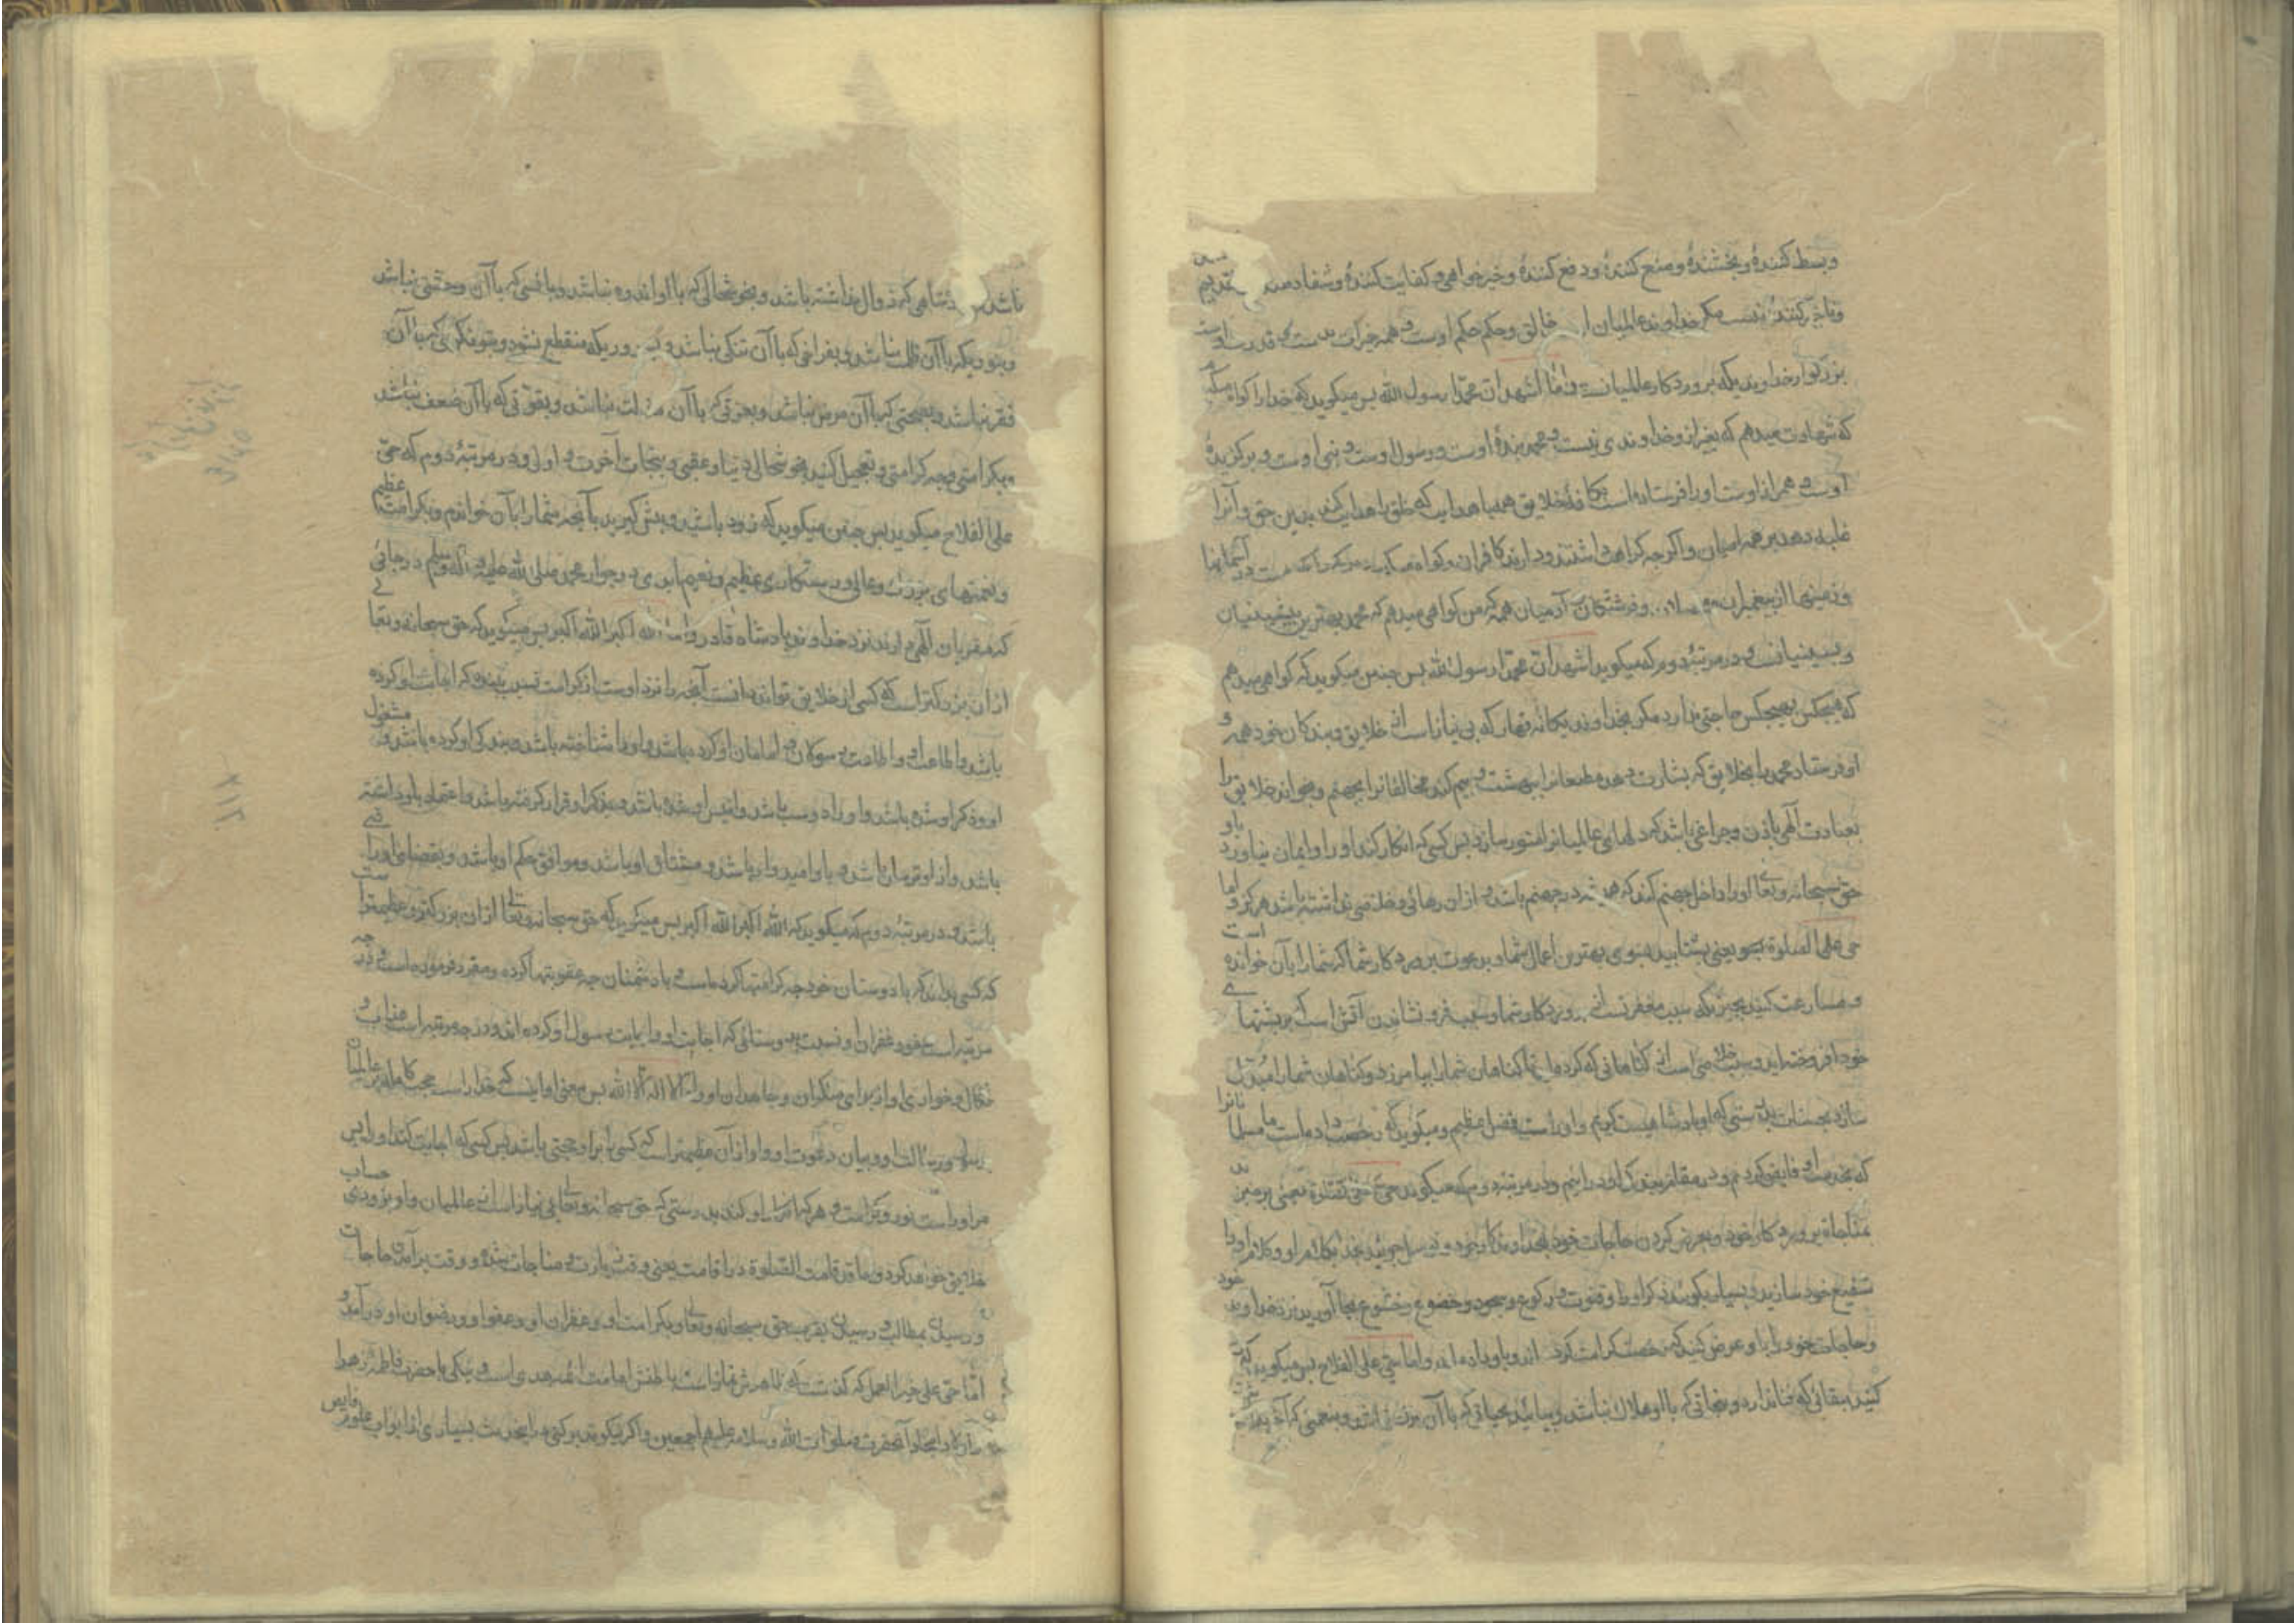 وبسط کنندهٔ وبخشندهٔ ومنع کنندهٔ ودفع کنندهٔ وخیرخواهی وکفایت کنندهٔ وشفا دهنده تقدیم
وتاخیر کنندهٔ نیست مکر خداوند عالمیان خالق وحکم حکم اوست وهمه خیرات بدست قدرت اوست
بزرکوار خداوندیکه پروردکار عالمیانست واما اشهد ان محمدا رسول الله پس میکوید که خدا را کواه میکیرم
که شهادت میدهم که بغیر از و خداوندی نیست ومحمد بندهٔ اوست ورسول اوست ونبی اوست وبرکزیدهٔ
اوست وهمراز اوست او را فرستاده است بکافهٔ خلایق همه با هدایت که خلق را هدایت کند بدین حق وآنرا
غلبه دهد بر همه ادیان واکرچه کراهت داشته ودارند کافران وکواه میکیرم هر که را که هست در آسمانها
وزمینها از پیغمبران ومرسلان وفرشتکان وآدمیان همه که من کواهی میدهم که محمد بهترین پیشینیان
وپسینیانست ودر مرتبهٔ دوم که میکوید اشهد ان محمدا رسول الله پس چنین میکوید که کواهی میدهم
که هیچکس بهیچکس حاجتی ندارد مکر بخداوند یکانه قهار که بی نیاز است از خلایق وبندکان خود همه و
او فرستاد محمد را بخلایق که بشارت دهد مطیعانرا ببهشت وبیم کند مخالفانرا بجهنم وبخواند خلایق را
بعبادت الهی باذن وچراغی باشد که دلهای عالمیانرا منور سازد پس کسی که انکار کند او را وایمان نیاورد باو
حق سبحانه وتعالی او را داخل جهنم کند که همیشه در جهنم باشد واز ان رهائی وخلاصی نداشته باشد هرکز واما
حی علی الصلوة یعنی بشتابید بسوی بهترین اعمال شما وبدعوت پروردکار شما که شما را بآن خوانده است
ومسارعت کنید بچیزیکه سبب مغفرتست از پروردکار شما وسبب فرو نشاندن آتشی است که بر پشتهای
خود افروخته اید وسبب خلاصی است از کناهانی که کرده اید تا کناهان شما را بیامرزد وکناهان شما را مبدل
سازد بحسنات بدرستی که او پادشاهیست کریم واوراست فضل عظیم ومیکوید که رخصت داده است ما مسلمانانرا
که بخدمت او قایم کردیم ودر مقام بندکی او در آئیم ودر مرتبهٔ دوم که میکوید حی علی الصلوة یعنی برخیزید
بمناجاة پروردکار خود وبعرض کردن حاجات خود بخداوندکار خود وتوسل جوئید بخدا بکلام او وکلام او را
شفیع خود سازید وبسیار بکوئید ذکر او را وقنوت ورکوع وسجود وخضوع وخشوع بجا آورید نزد خداوند خود
وحاجات خود را باو عرض کنید که رخصت کرامت کرده اند وباو داده اند واما حی علی الفلاح پس میکوید که
کنید ببقائی که فنا ندارد ونجاتی که با او هلاک نباشد وبیائید بحیاتی که با آن مرک نباشد وبنعمتی که آخر
دشاهی که زوال نداشته باشد وبخوشحالی که با او اندوه نباشد وبانسی که با آن وحشتی نباشد
وبنوریکه با آن ظلمت نباشد وبفراخی که با آن تنکی نباشد وبسروریکه منقطع نشود وبتونکری که با آن
فقر نباشد وبصحتی که با آن مرض نباشد وبعزتی که با آن مذلت نباشد وبقوتی که با آن ضعف نباشد
وبکرامتی وچه کرامتی وتعجیل کنید بخوشحالی دنیا وعقبی وبنجات آخرت واولی ودر مرتبهٔ دوم که حی
علی الفلاح میکوید پس چنین میکوید که زود باشید وپیشی کیرید بآنچه شما را بآن خواندم وبکرامت عظیم
ونعمتهای بزرک وعالی ورستکاری عظیم ونعیم ابدی در جوار محمد صلی الله علیه وآله وسلم در جائی
که مقربان الهی دارند نزد خداوند پادشاه قادر واما الله اکبر الله اکبر پس میکوید که حق سبحانه وتعالی
از ان بزرکتر است که کسی از خلایق تواند دانست آنچه را نزد اوست از کرامت نسبت ببنده که اجابت او کرده
باشد واطاعت او واطاعت رسولان وامامان او کرده باشد واو را شناخته باشد وبندکی او کرده باشد ومشغول
او وذکر او شده باشد واو را دوست باشد وانیس او شده باشد وبذکر او قرار کرفته باشد واعتماد باو داشته
باشد واز او ترسان باشد وباو امیدوار باشد ومشتاق او باشد وموافق حکم او باشد وبقضای او راضی
باشد ودر مرتبهٔ دوم که میکوید که الله اکبر الله اکبر پس میکوید که حق سبحانه وتعالی از ان بزرکتر وعظیمتر است
که کسی بداند که با دوستان خود چه کرامتها کرده است وبا دشمنان چه عقوبتها کرده ومقرر فرموده است ودر چه
مرتبه است عفو وغفران او نسبت بدوستانی که اجابت او واجابت رسول او کرده اند ودر چه مرتبه است عذاب و
نکال وخواری او از برای منکران وجاحدان او واما لا اله الا الله پس معنی او اینست که خدا راست حجت کامله بر عالمیان
برسول ورسالت او وبیان دعوت او واو از آن عظیمتر است که کسی را بر او حجتی باشد پس کسی که اجابت کند او را پس
مر او راست نور وکرامت وهر که انکار او کند بدرستی که حق سبحانه وتعالی بی نیاز است از عالمیان واو بزودی حساب
خلایق خواهد کرد وما قد قامت الصلوة در اقامت یعنی وقت زیارت ومناجات شد ووقت برآمدن حاجات
ورسیدن بمطالب ورسیدن بقرب حق سبحانه وتعالی وبکرامت او وغفران او وعفو او ورضوان او در آمد و
اما حی علی خیر العمل که کذشت که ظاهرش نماز است باطنش امامت ائمه هدی است ونیکی با حضرت فاطمهٔ زهرا
واولاد امجاد آنحضرت صلوات الله وسلامه علیهم اجمعین واکر نیکو تدبر کنی در اینحدیث بسیاری از ابواب علوم فایض